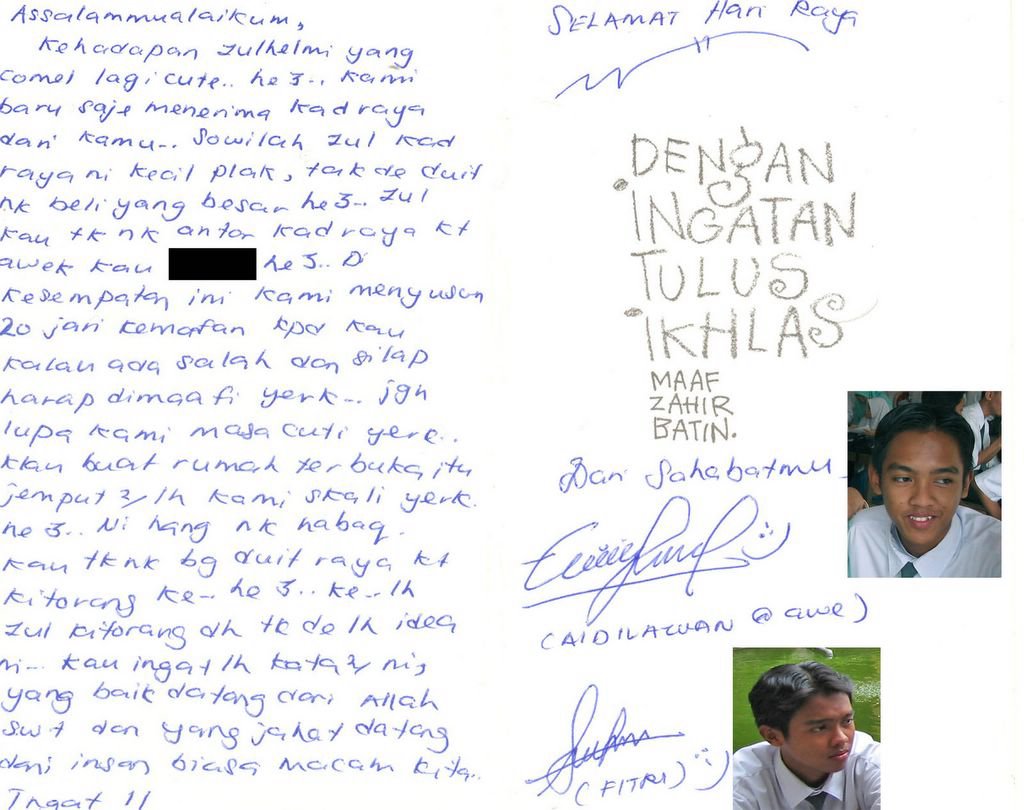 Assalammualaikum,
Kehadapan Zulhelmi yang
comel lagi cute.. he3.. kami
baru saje menerima kad raya
dari kamu.. Sowilah Zul kad
raya ni kecil plak, tak de duit
nk beli yang besar he3.. Zul
kau tk nk antor kad raya kt
awek kau he3.. Di
kesempatan ini kami menyusun
20 jari kemafan kpd kau
kalau ada salah dan silap
harap dimaafi yerk... jgn
lupa kami masa cuti yerk..
klau buat rumah terbuka itu
jemput2 lh kami skali yerk.
he3.. Ni hang nk habaq.
kau tk nk bg duit raya kt
kitorang ke.. he3.. ke.. lh
Zul kitorang dh tk de lh idea
ni... kau ingat lh kata2 ni,
yang baik datang dari Allah
swt dan yang jahat datang
dari insan biasa macam kita..
Ingat !!
SELAMAT Hari Raya
DENGAN
INGATAN
TULUS
IKHLAS
MAAF
ZAHIR
BATIN.
Dari Sahabatmu
(AIDILAZUAN @ awe)
(FITRI)